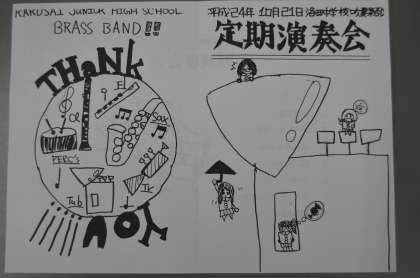 RAKUSAI JUNIOR HIGH SCHOOL
BRASS BAND!!
THANK
FL
Cl
Sax
PERC's
Tub
YOU
平成24年 10月21日 洛西中学校吹奏楽部
定期演奏会